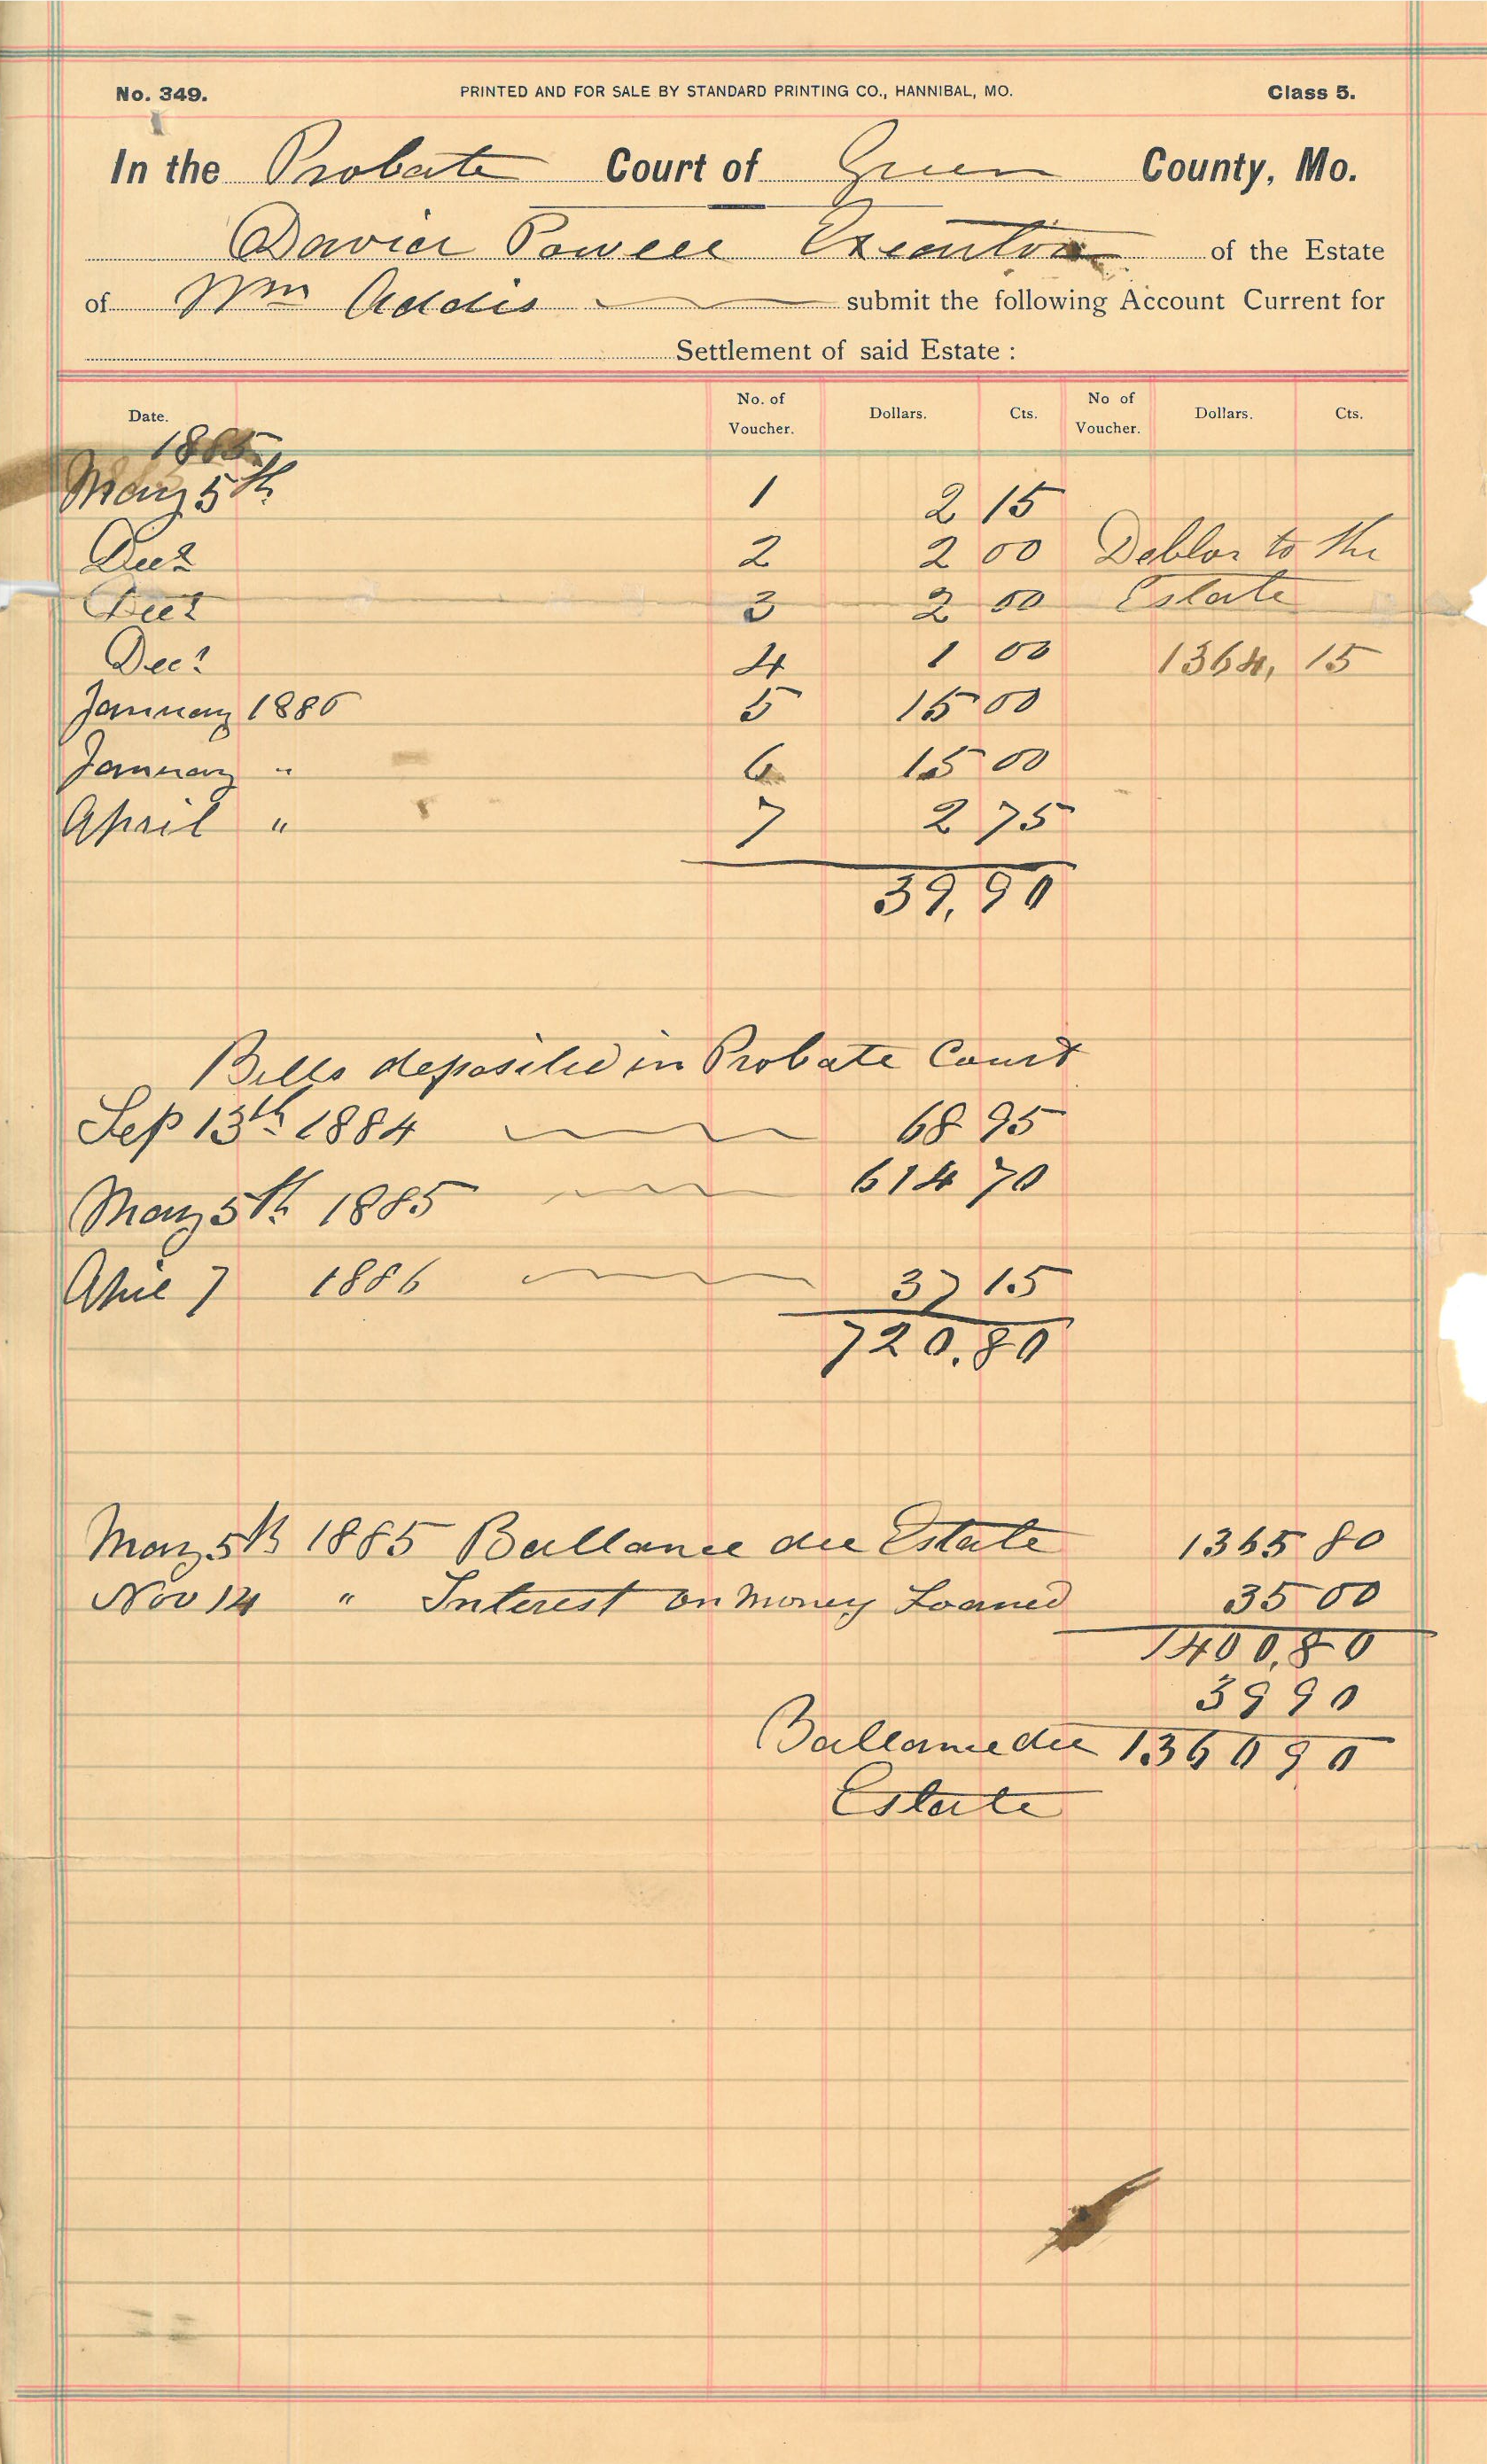 No. 349. PRINTED AND FOR SALE BY STANDARD PRINTING CO., HANNIBAL, MO. Class 5.
In the Probate Court of Green County, Mo.
David Powell Executor of the Estate
of Wm Addis submit the following Account Current for
Settlement of said Estate :
Date. No. of Voucher. Dollars. Cts. No of Voucher. Dollars. Cts.
1885
May 5th 1 2 15
Dec 2 2 00 Debtor to the
Dec 3 2 00 Estate
Dec 4 1 00 1364, 15
January 1886 5 15 00
January " 6 15 00
April " 7 2 75
39,90
Bills deposited in Probate Court
Sep 13th 1884 68 95
May 5th 1885 614 70
April 7 1886 37 15
720.80
May 5th 1885 Ballance due Estate 1365 80
Nov 14 " Interest on Money Loaned 35 00
1400,80
39 90
Ballance due 1360 90
Estate